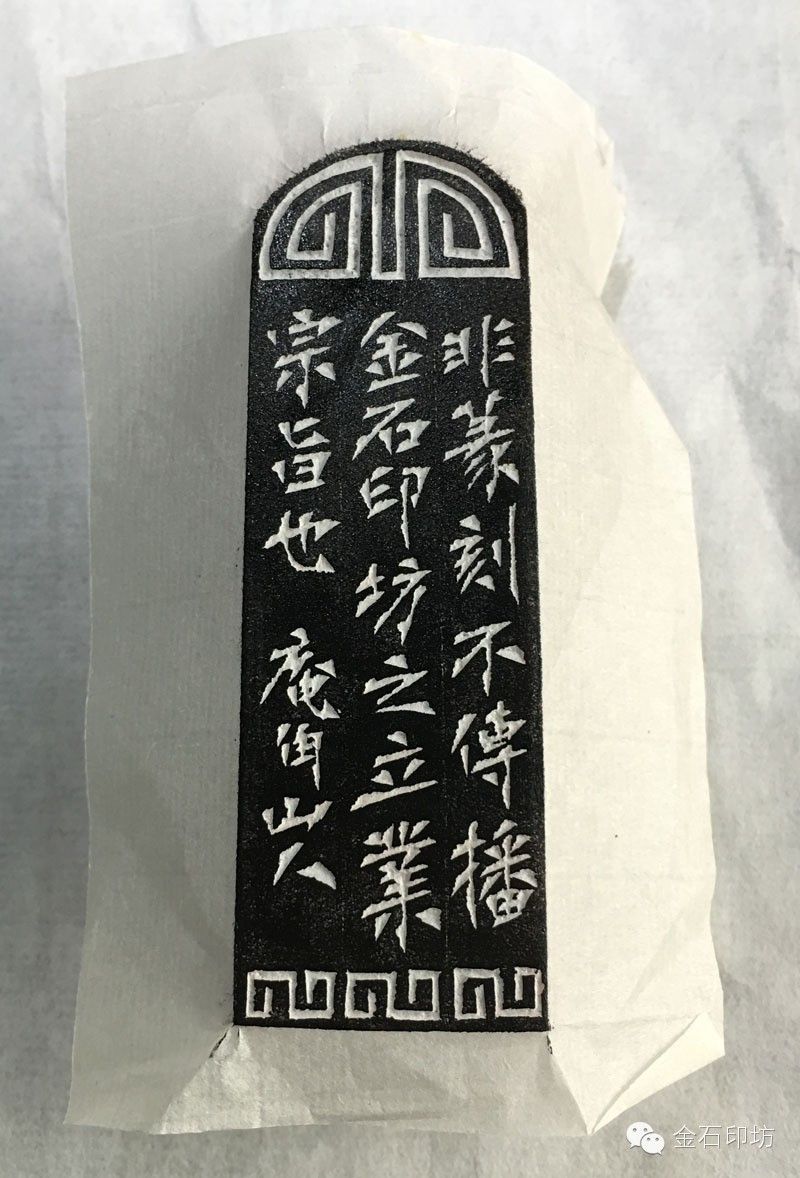 非篆刻不傳播
金石印坊之立業
宗旨也 庵山人
金石印坊